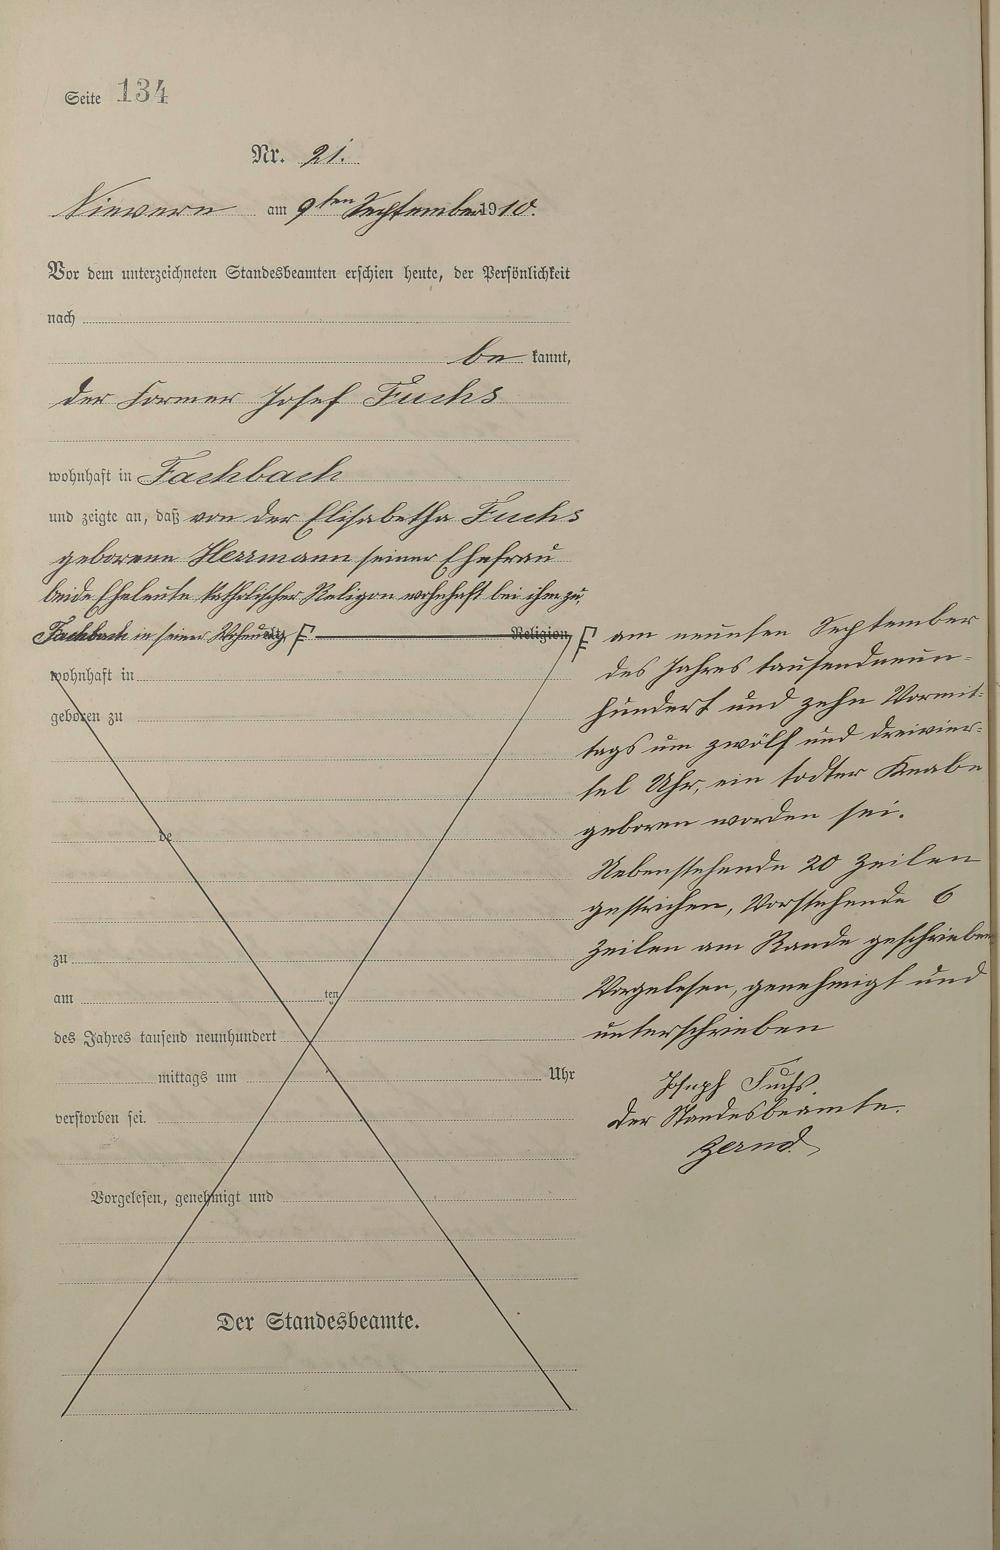 Seite 134
Nr. 21.
Nievern am 9ten September 1910.
Vor dem unterzeichneten Standesbeamten erschien heute, der Persönlichkeit
nach
be kannt,
der Former Josef Fuchs
wohnhaft in Fachbach
und zeigte an, daß von der Elisabetha Fuchs
geborene Herrmann seiner Ehefrau
beide Eheleute katholischer Religion wohnhaft bei ihm zu
Fachbach in seiner Wohnung F Religion,
wohnhaft in
geboren zu
de
zu
am ten
des Jahres tausend neunhundert
mittags um Uhr
verstorben sei.
Vorgelesen, genehmigt und
Der Standesbeamte.
F am neunten September
des Jahres tausendneun-
hundert und zehn Vormit-
tags um zwölf und dreivier-
tel Uhr, ein todter Knabe
geboren worden sei.
Nebenstehende 20 Zeilen
gestrichen, Vorstehende 6
Zeilen am Rande geschrieben
Vorgelesen, genehmigt und
unterschrieben
Joseph Fuchs.
Der Standesbeamte.